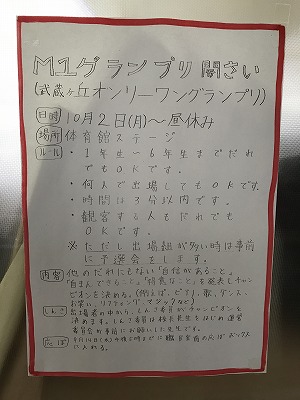 M1グランプリ開さい
(武蔵ヶ丘オンリーワングランプリ)
日時 10月2日(月)〜昼休み
場所 体育館ステージ
ルール ・1年生〜6年生までだれ
でもOKです。
・何人で出場してもOKです。
・時間は3分以内です。
・観客する人もだれでも
OKです。
※ただし出場組が多い時は事前
に予選会をします。
内容 他のだれにもない「自信があること」
「自まんできること」「得意なこと」を発表しチャン
ピオンを決める。(例えば、ピアノ、歌、ダンス、
お笑い、リフティング、マジックなど)
しんさ 出場者の中から、しんさ委員がチャンピオンを
決めます。しんさ委員は校長先生をはじめ運営
委員会が事前にお願いした先生です。
応ぼ 9月14日(木)
職員室前の応ぼボックス
に入れる。